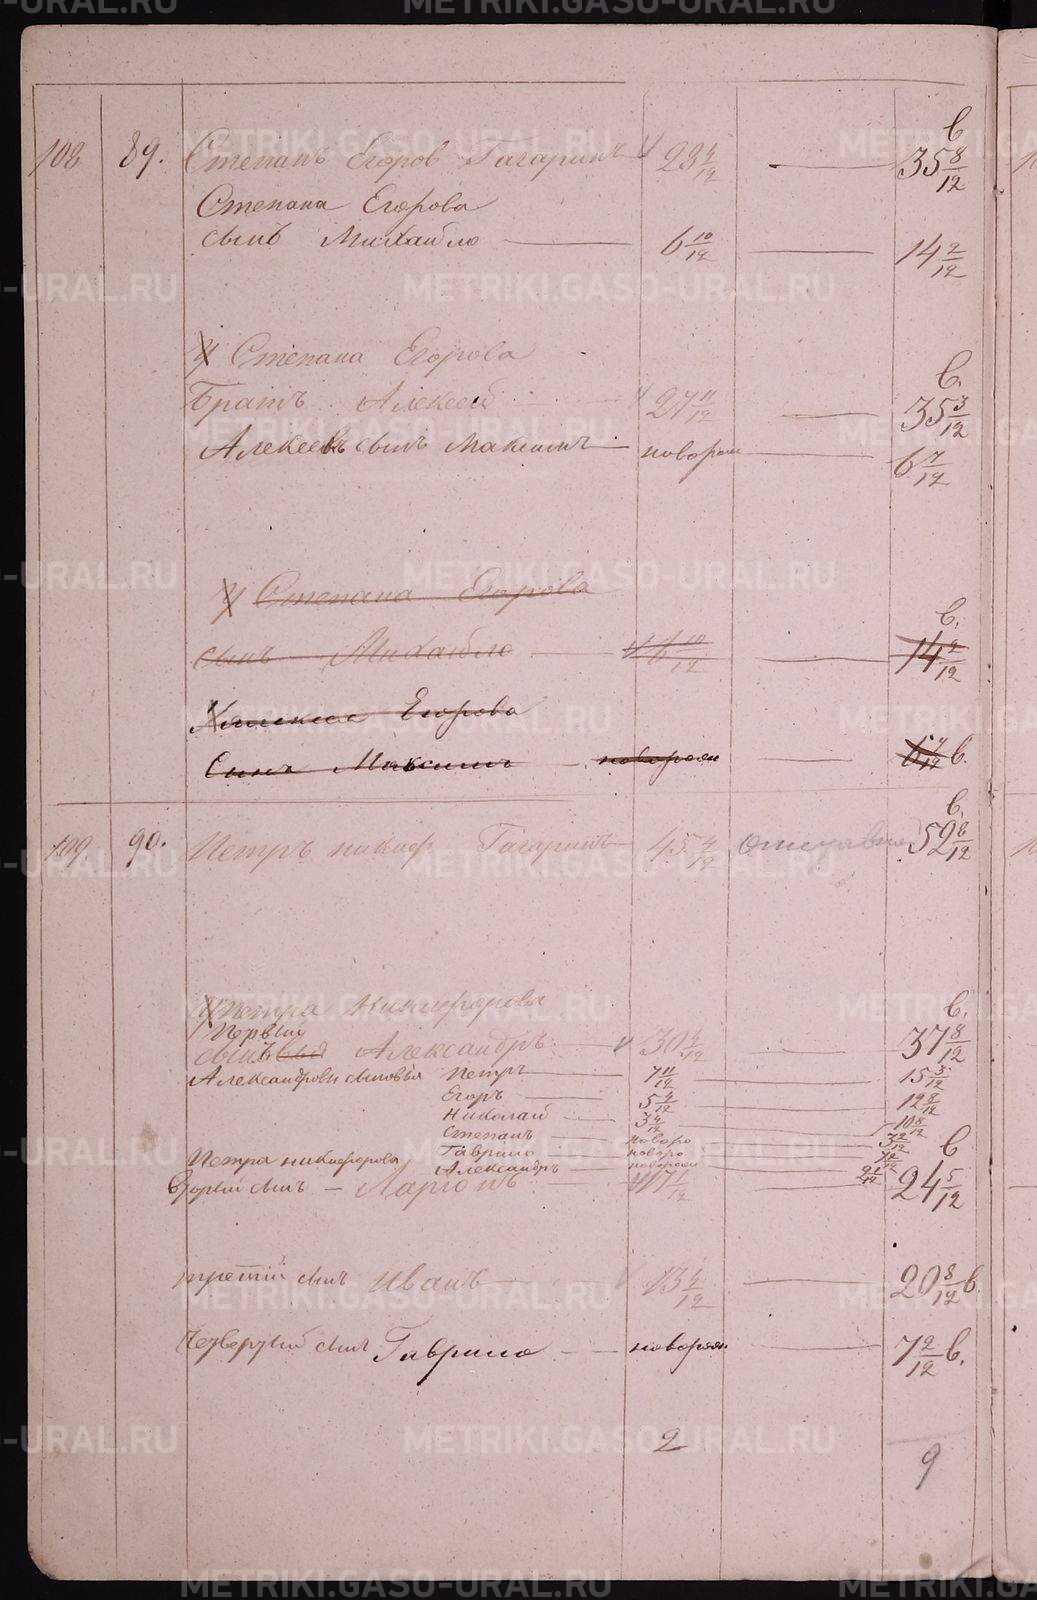 108 89. Степанъ Егоров Гагаринъ 28 4/12 35 8/12 в.
Степана Егорова
сынъ Михайло 6 10/12 14 2/12
У Степана Егорова
Братъ Алексей 27 11/12 35 3/12 в.
Алексеевъ сынъ Максимъ новорож 6 7/12
У Степана Егорова
сынъ Михайло 6 10/12 14 2/12 в.
У Алексея Егорова
Сынъ Максимъ новорожд в.
109 90. Петръ никиф Гагаринъ 45 4/12 52 8/12 в.
У Петра Никифорова
Первый
сынъ Александръ 30 4/12 37 8/12 в.
Александровы сыновья Петръ 7 11/12 15 3/12
Егоръ 5 4/12 12 8/12
Николай 3 4/12 10 8/12
Степанъ новоро
Гаврило новоро в
Петра никифорова Александръ новорож
Второй сынъ – Ларіонъ 17 1/12 24 5/12
третій сынъ Иванъ 13 4/12 20 8/12 в.
Четвертый сынъ Гаврило новорож 7 2/12 в.
2 9
METRIKI.GASO-URAL.RU